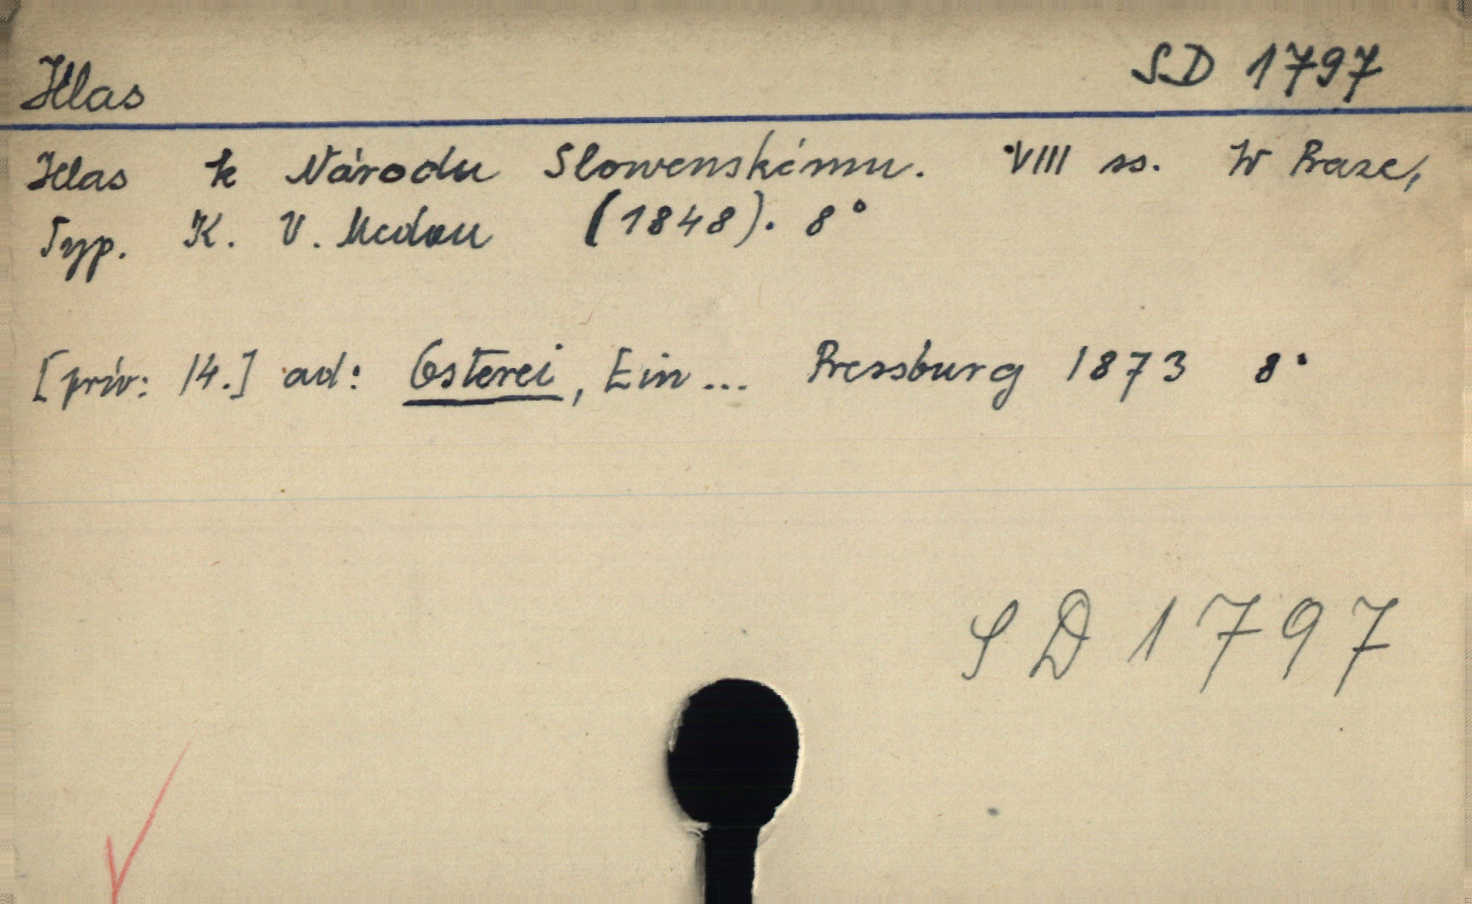 Hlas SD 1797
Hlas k Národu Slowenskému. VIII ss. W Praze,
Typ. K. V. Medau (1848). 8°
[priv: 14.] ad: Osterei, Ein... Pressburg 1873 8°
SD 1797